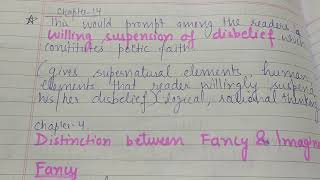 Chapter-14
This would prompt among the readers a
willing suspension of disbelief which
constitutes poetic faith
(gives supernatural elements, human
elements that reader willingly suspend
his/her disbelief) logical, rational thinking
Chapter-4
Distinction between Fancy & Imagine
Fancy